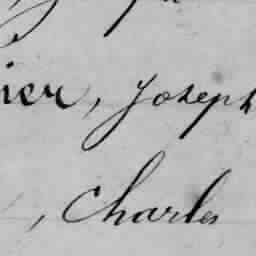 ier, Joseph
, Charles